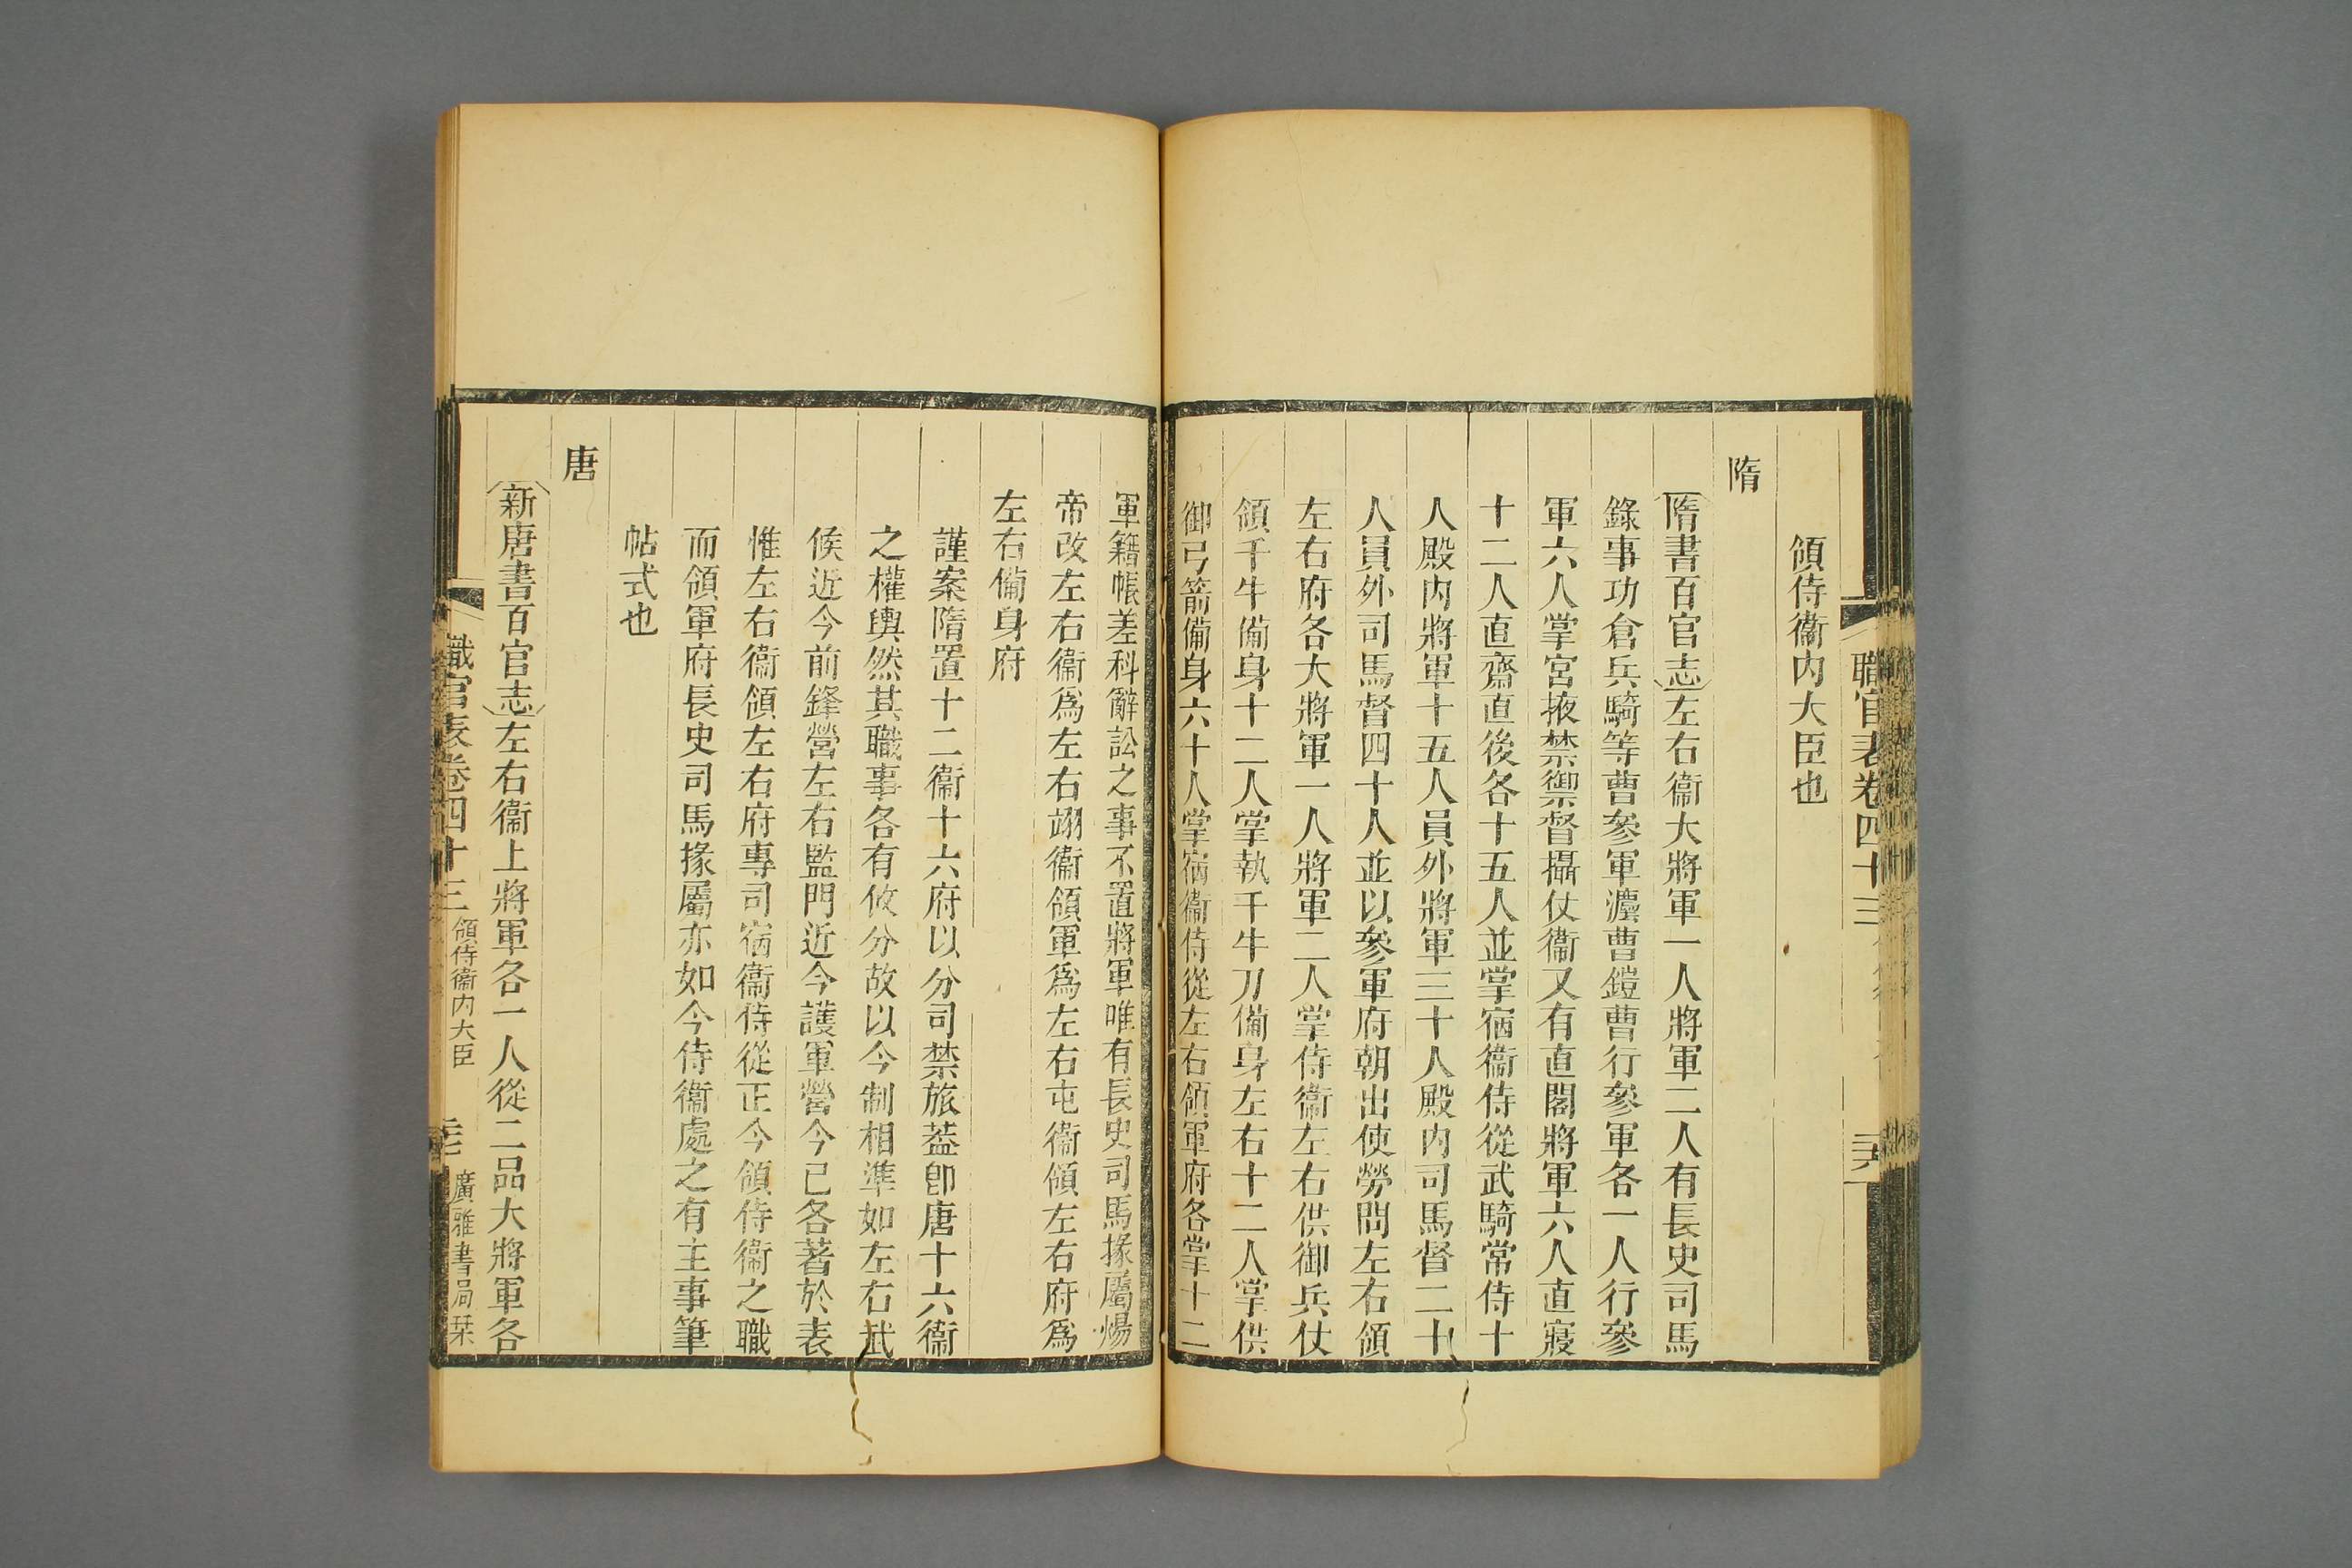 職官表卷四十三
領侍衞内大臣也
隋
隋書百官志左右衞大將軍一人將軍二人有長史司馬
錄事功倉兵騎等曹參軍灋曹鎧曹行參軍各一人行參
軍六人掌宮掖禁禦督攝仗衞又有直閤將軍六人直寢
十二人直齋直後各十五人並掌宿衞侍從武騎常侍十
人殿内將軍十五人員外將軍三十人殿内司馬督二十
人員外司馬督四十人並以參軍府朝出使勞問左右領
左右府各大將軍一人將軍二人掌侍衞左右供御兵仗
領千牛備身十二人掌執千牛刀備身左右十二人掌供
御弓箭備身六十人掌宿衞侍從左右領軍府各掌十二
軍籍帳差科辭訟之事不置將軍唯有長史司馬掾屬煬
帝改左右衞爲左右翊衞領軍爲左右屯衞領左右府爲
左右備身府
謹案隋置十二衞十六府以分司禁旅葢卽唐十六衞
之權輿然其職事各有攸分故以今制相準如左右武
候近今前鋒營左右監門近今護軍營今已各著於表
惟左右衞領左右府專司宿衞侍從正今領侍衞之職
而領軍府長史司馬掾屬亦如今侍衞處之有主事筆
帖式也
唐
新唐書百官志左右衞上將軍各一人從二品大將軍各
職官表卷四十三 領侍衞内大臣 廣雅書局栞